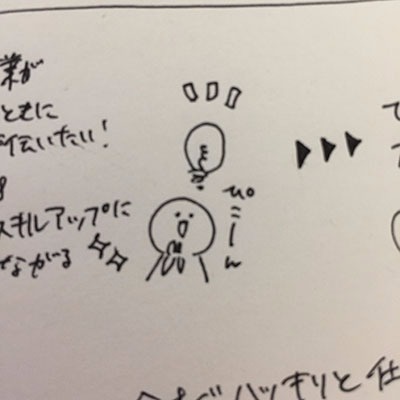 業が
ともに
伝いたい!
スキルアップに
ながる
ぴこーん
て
ハッキリと仕